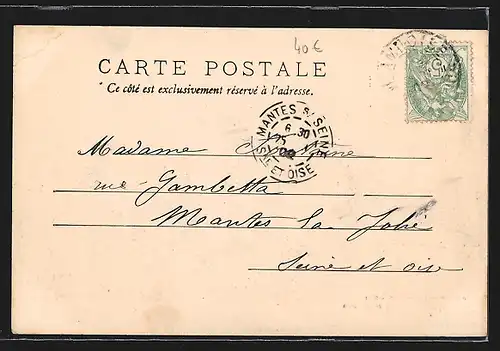 40€
CARTE POSTALE
* Ce côté est exclusivement réservé à l'adresse.
MANTES S/ SEINE
6 30
25
02
SNE ET OISE
5
Madame
rue Gambetta
Mantes la Jolie
Seine et oise